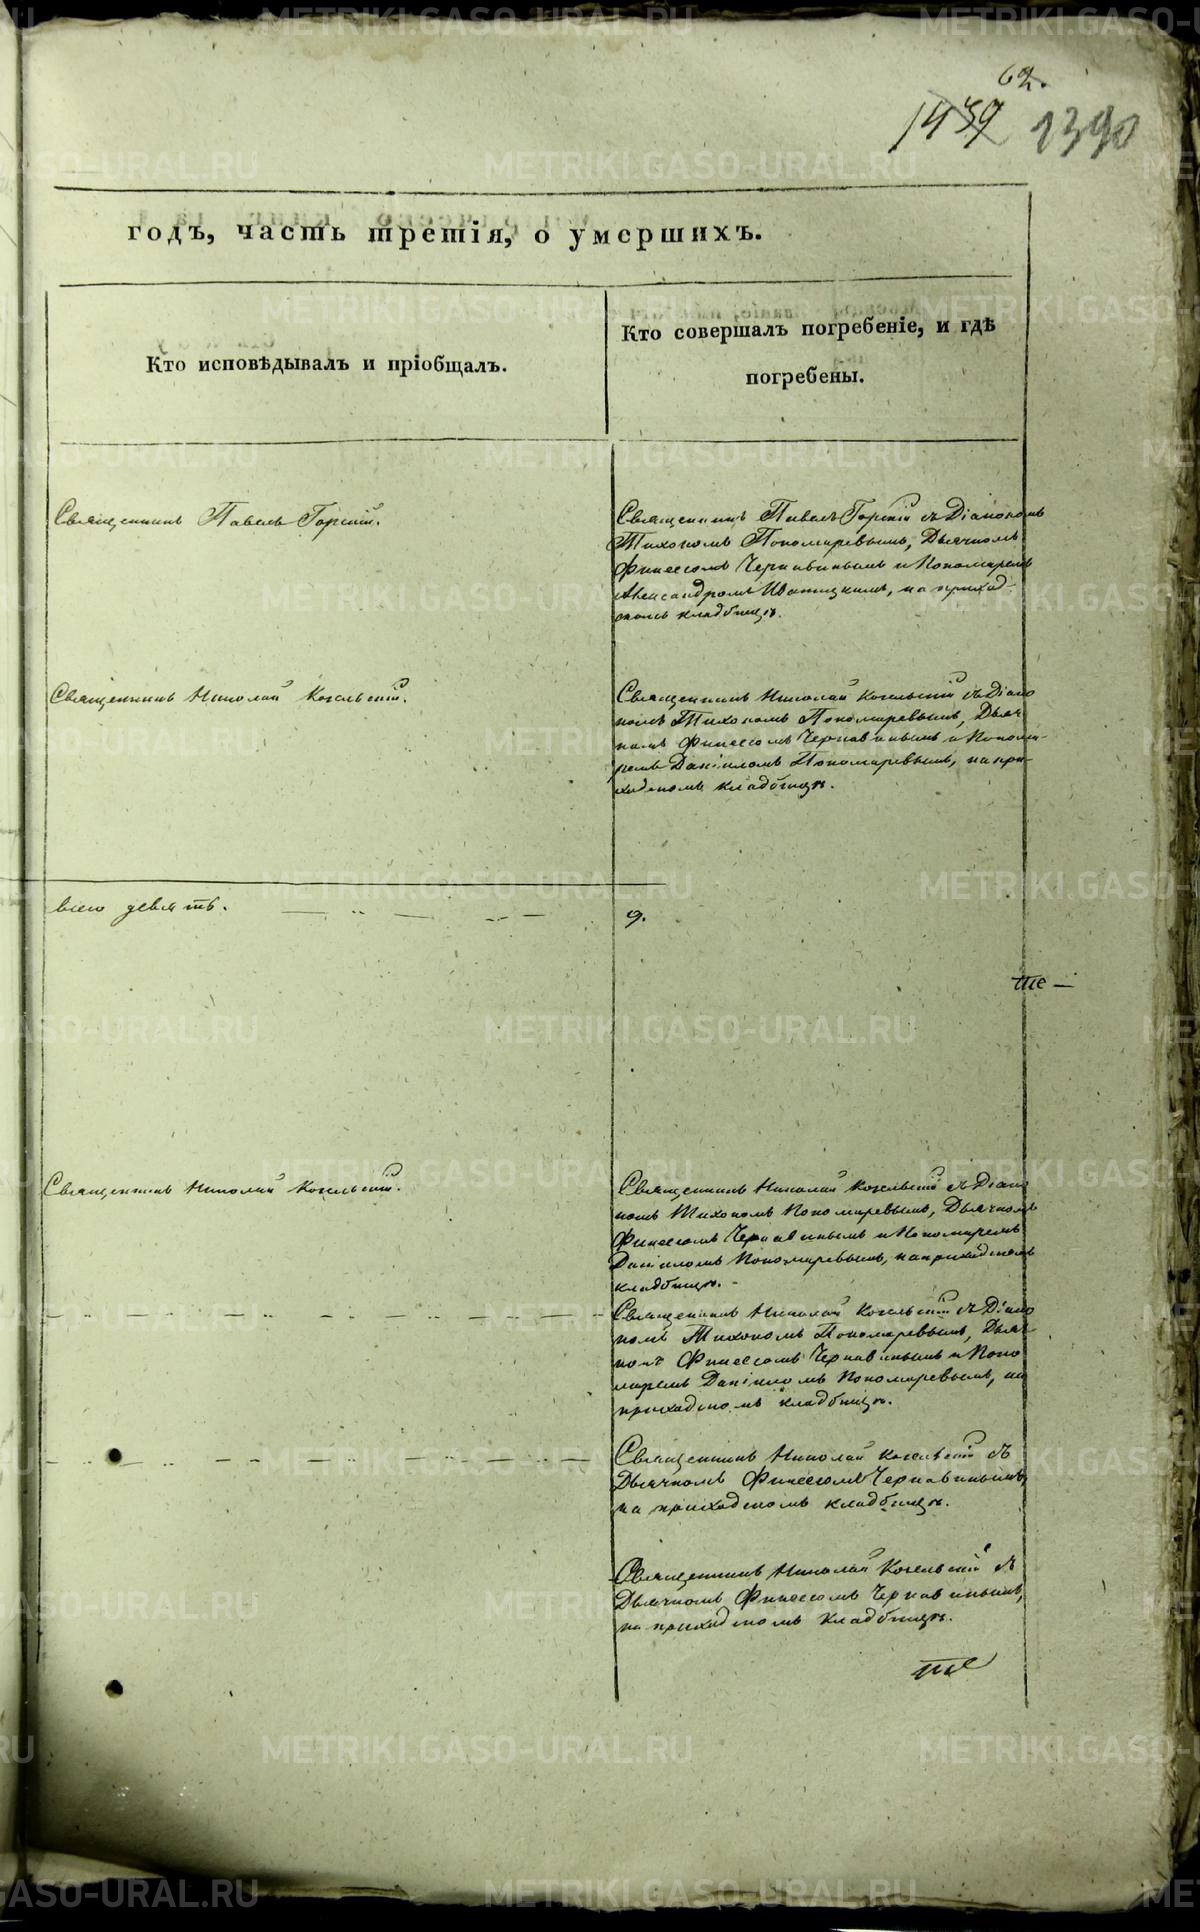 62.
1439 1390
годъ, часть третія, о умершихъ.
Кто исповѣдывалъ и пріобщалъ.
Кто совершалъ погребеніе, и гдѣ
погребены.
Священникъ Павелъ Горскій.
Священникъ Павелъ Горскій съ Діакономъ
Тихономъ Пономаревымъ, Дьячкомъ
Финеесомъ Чернавинымъ и Пономаремъ
Александромъ, на приход-
скомъ кладбищѣ.
Священникъ Николай Когельскій.
Священникъ Николай Когельскій съ Діако
номъ Тихономъ Пономаревымъ, Дьяч
комъ Финеесомъ Чернавинымъ и Понома-
ремъ Даніиломъ Пономаревымъ, на при-
ходскомъ кладбищѣ.
всего девять.
9.
Священникъ Николай Когельскій.
Священникъ Николай Когельскій съ Діако
номъ Тихономъ Пономаревымъ, Дьячкомъ
Финеесомъ Чернавинымъ и Пономаремъ
Даніиломъ Пономаревымъ, на приходскомъ
кладбищѣ. -
Священникъ Николай Когельскій съ Діако
номъ Тихономъ Пономаревымъ, Дьяч
комъ Финеесомъ Чернавинымъ и Поно
маремъ Даніиломъ Пономаревымъ, на
приходскомъ кладбищѣ.
Священникъ Николай Когельскій съ
Дьячкомъ Финеесомъ Чернавинымъ,
на приходскомъ кладбищѣ.
Священникъ Николай Когельскій съ
Дьячкомъ Финеесомъ Чернавинымъ,
на приходскомъ кладбищѣ.
METRIKI.GASO-URAL.RU